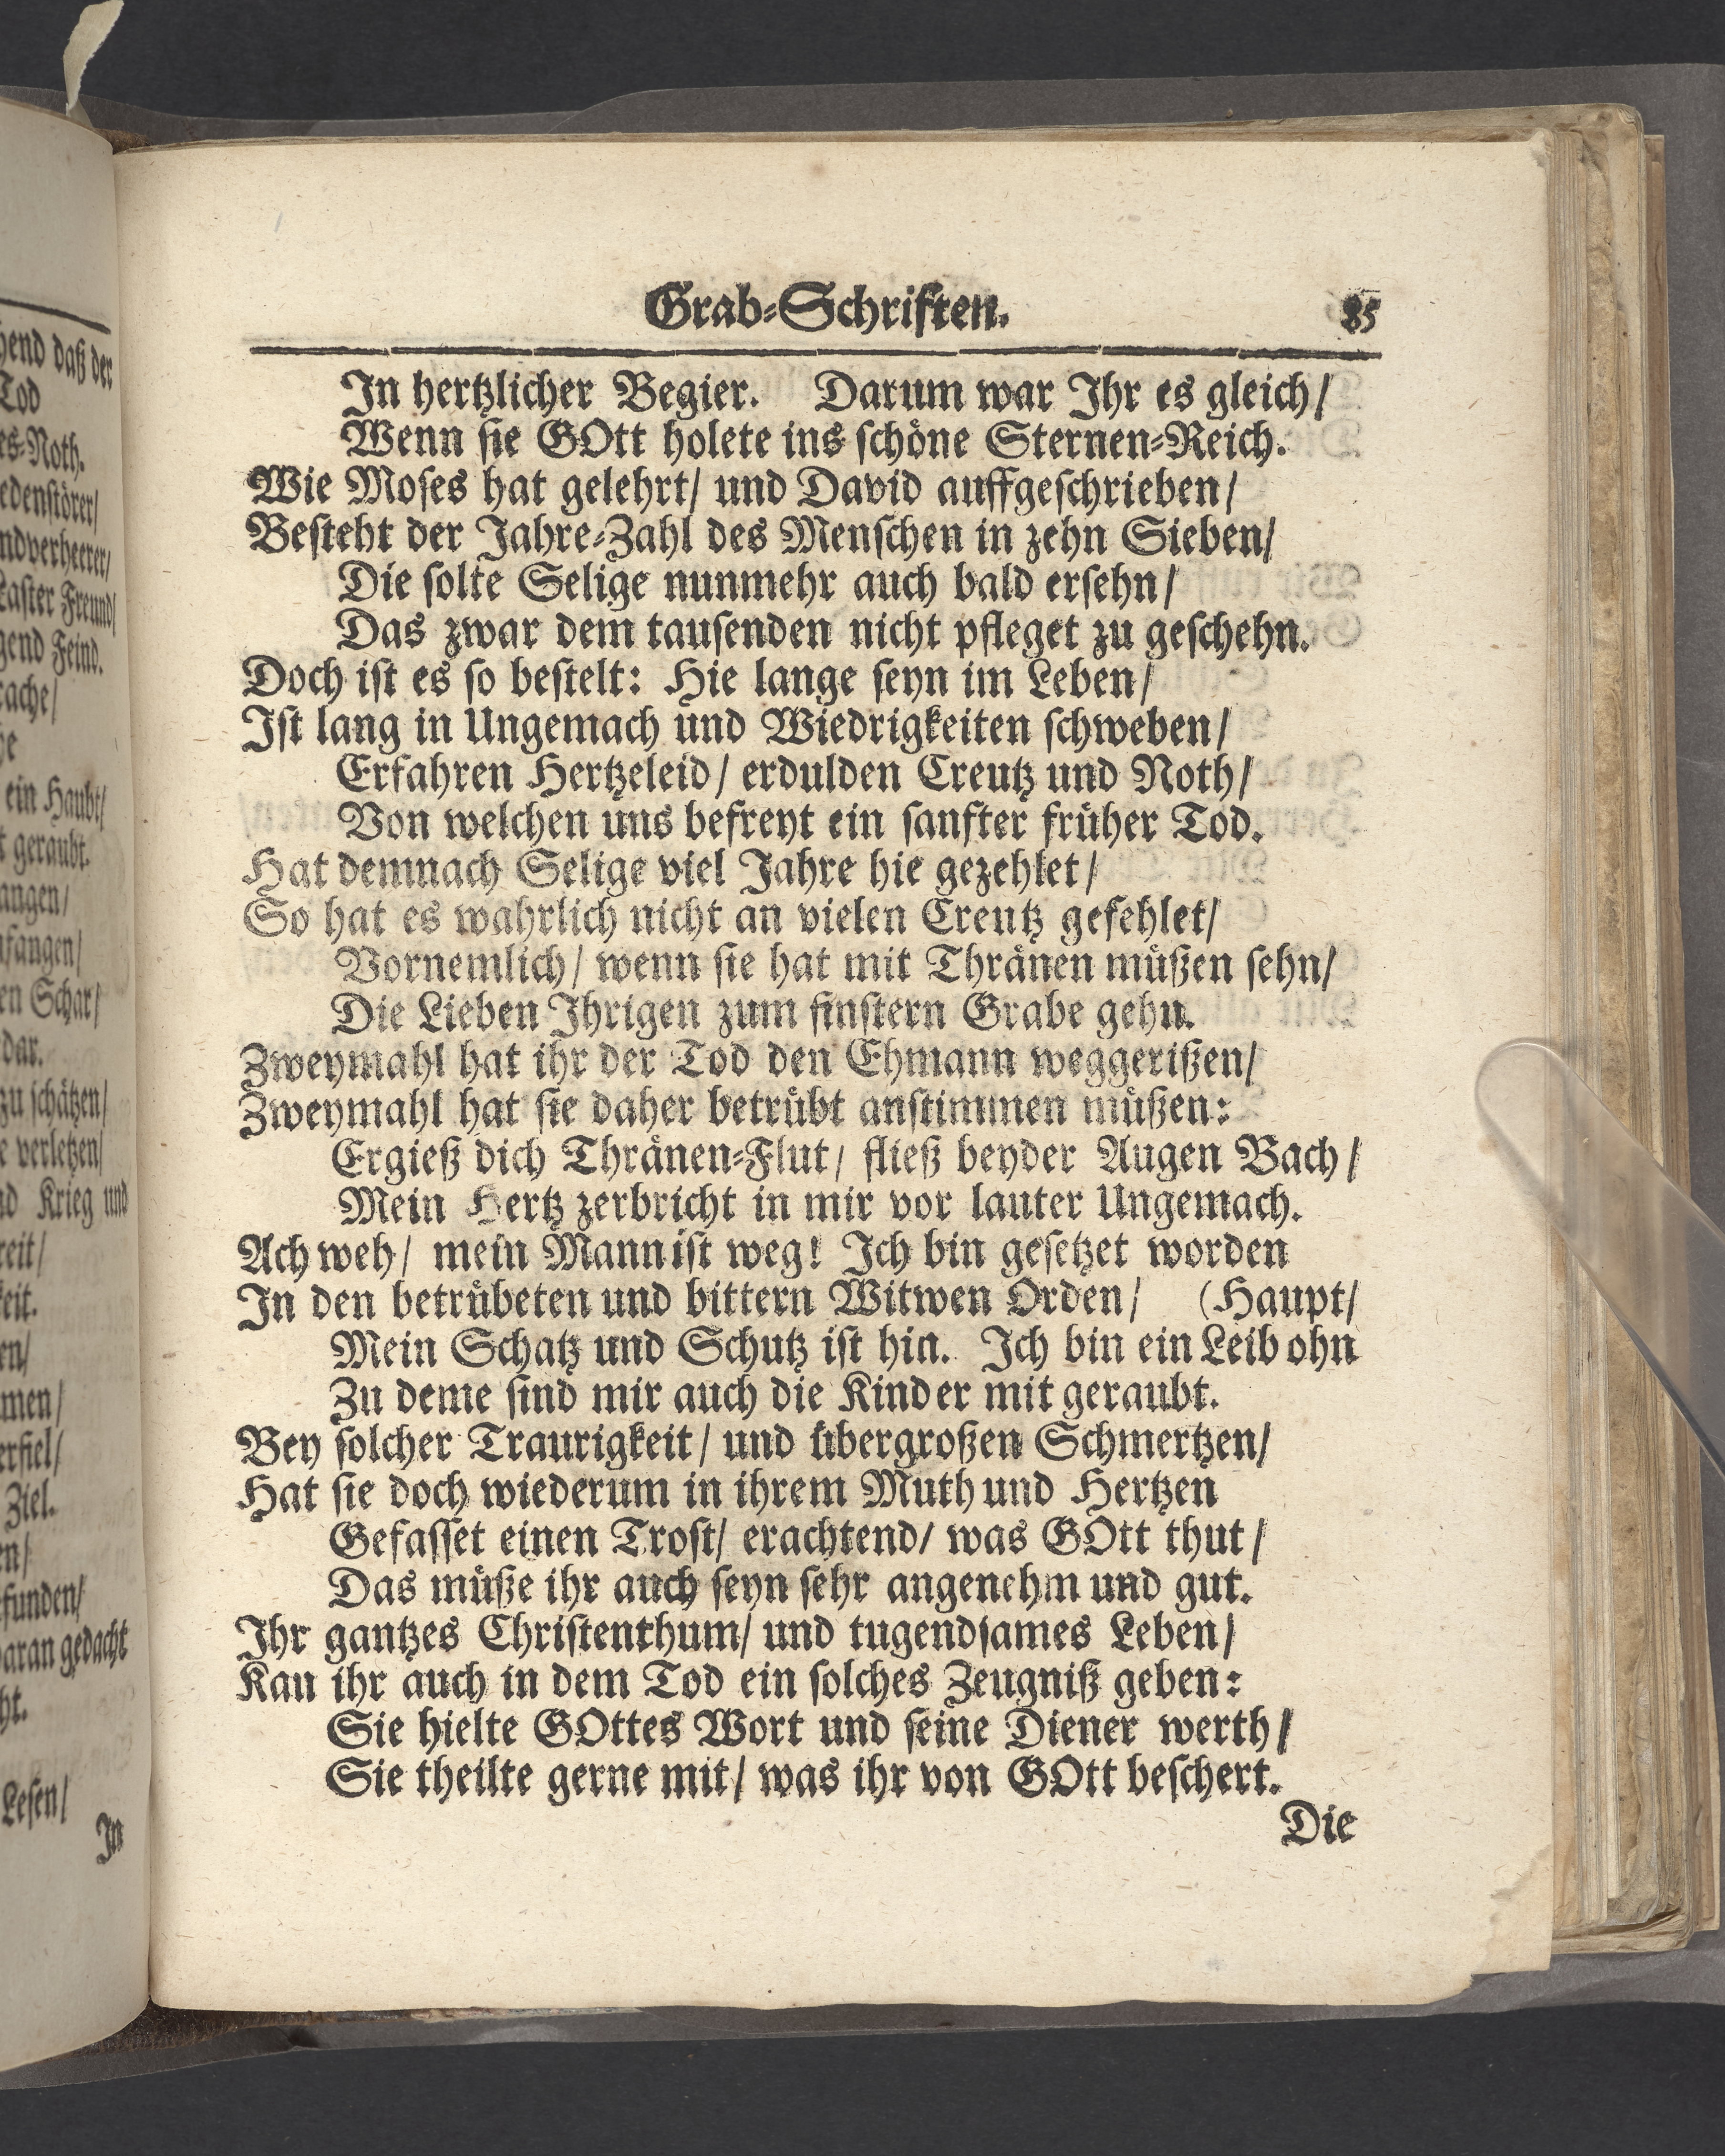 Grab-Schriften. 85
In hertzlicher Begier. Darum war Ihr es gleich/
Wenn sie GOtt holete ins schöne Sternen-Reich.
Wie Moses hat gelehrt/ und David auffgeschrieben/
Besteht der Jahre-Zahl des Menschen in zehn Sieben/
Die solte Selige nunmehr auch bald ersehn/
Das zwar dem tausenden nicht pfleget zu geschehn.
Doch ist es so bestelt: Hie lange seyn im Leben/
Ist lang in Ungemach und Wiedrigkeiten schweben/
Erfahren Hertzeleid/ erdulden Creutz und Noth/
Von welchen uns befreyt ein sanfter früher Tod.
Hat demnach Selige viel Jahre hie gezehlet/
So hat es wahrlich nicht an vielen Creutz gefehlet/
Vornemlich/ wenn sie hat mit Thränen müßen sehn/
Die Lieben Ihrigen zum finstern Grabe gehn.
Zweymahl hat ihr der Tod den Ehmann weggerißen/
Zweymahl hat sie daher betrübt anstimmen müßen:
Ergieß dich Thränen-Flut/ fließ beyder Augen Bach/
Mein Hertz zerbricht in mir vor lauter Ungemach.
Ach weh/ mein Mann ist weg! Ich bin gesetzet worden
In den betrübeten und bittern Witwen Orden/ (Haupt/
Mein Schatz und Schutz ist hin. Ich bin ein Leib ohn
Zu deme sind mir auch die Kinder mit geraubt.
Bey solcher Traurigkeit/ und übergroßen Schmertzen/
Hat sie doch wiederum in ihrem Muth und Hertzen
Gefasset einen Trost/ erachtend/ was GOtt thut/
Das müße ihr auch seyn sehr angenehm und gut.
Ihr gantzes Christenthum/ und tugendsames Leben/
Kan ihr auch in dem Tod ein solches Zeugniß geben:
Sie hielte GOttes Wort und seine Diener werth/
Sie theilte gerne mit/ was ihr von GOtt beschert.
Die
daß der
Tod
Noth.
Freund/
Feind.
ein Haubt/
geraubt.
Schar/
dar.
zu schätzen/
verletzen/
Krieg und
Ziel.
daran gedacht
Lesen/
In